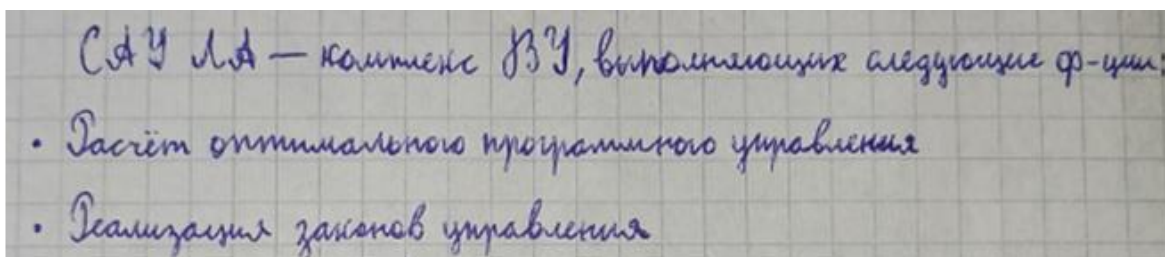 САУ ЛА — комплекс ВУ, выполняющих следующие ф-ции:
• Расчёт оптимального программного управления
• Реализация законов управления